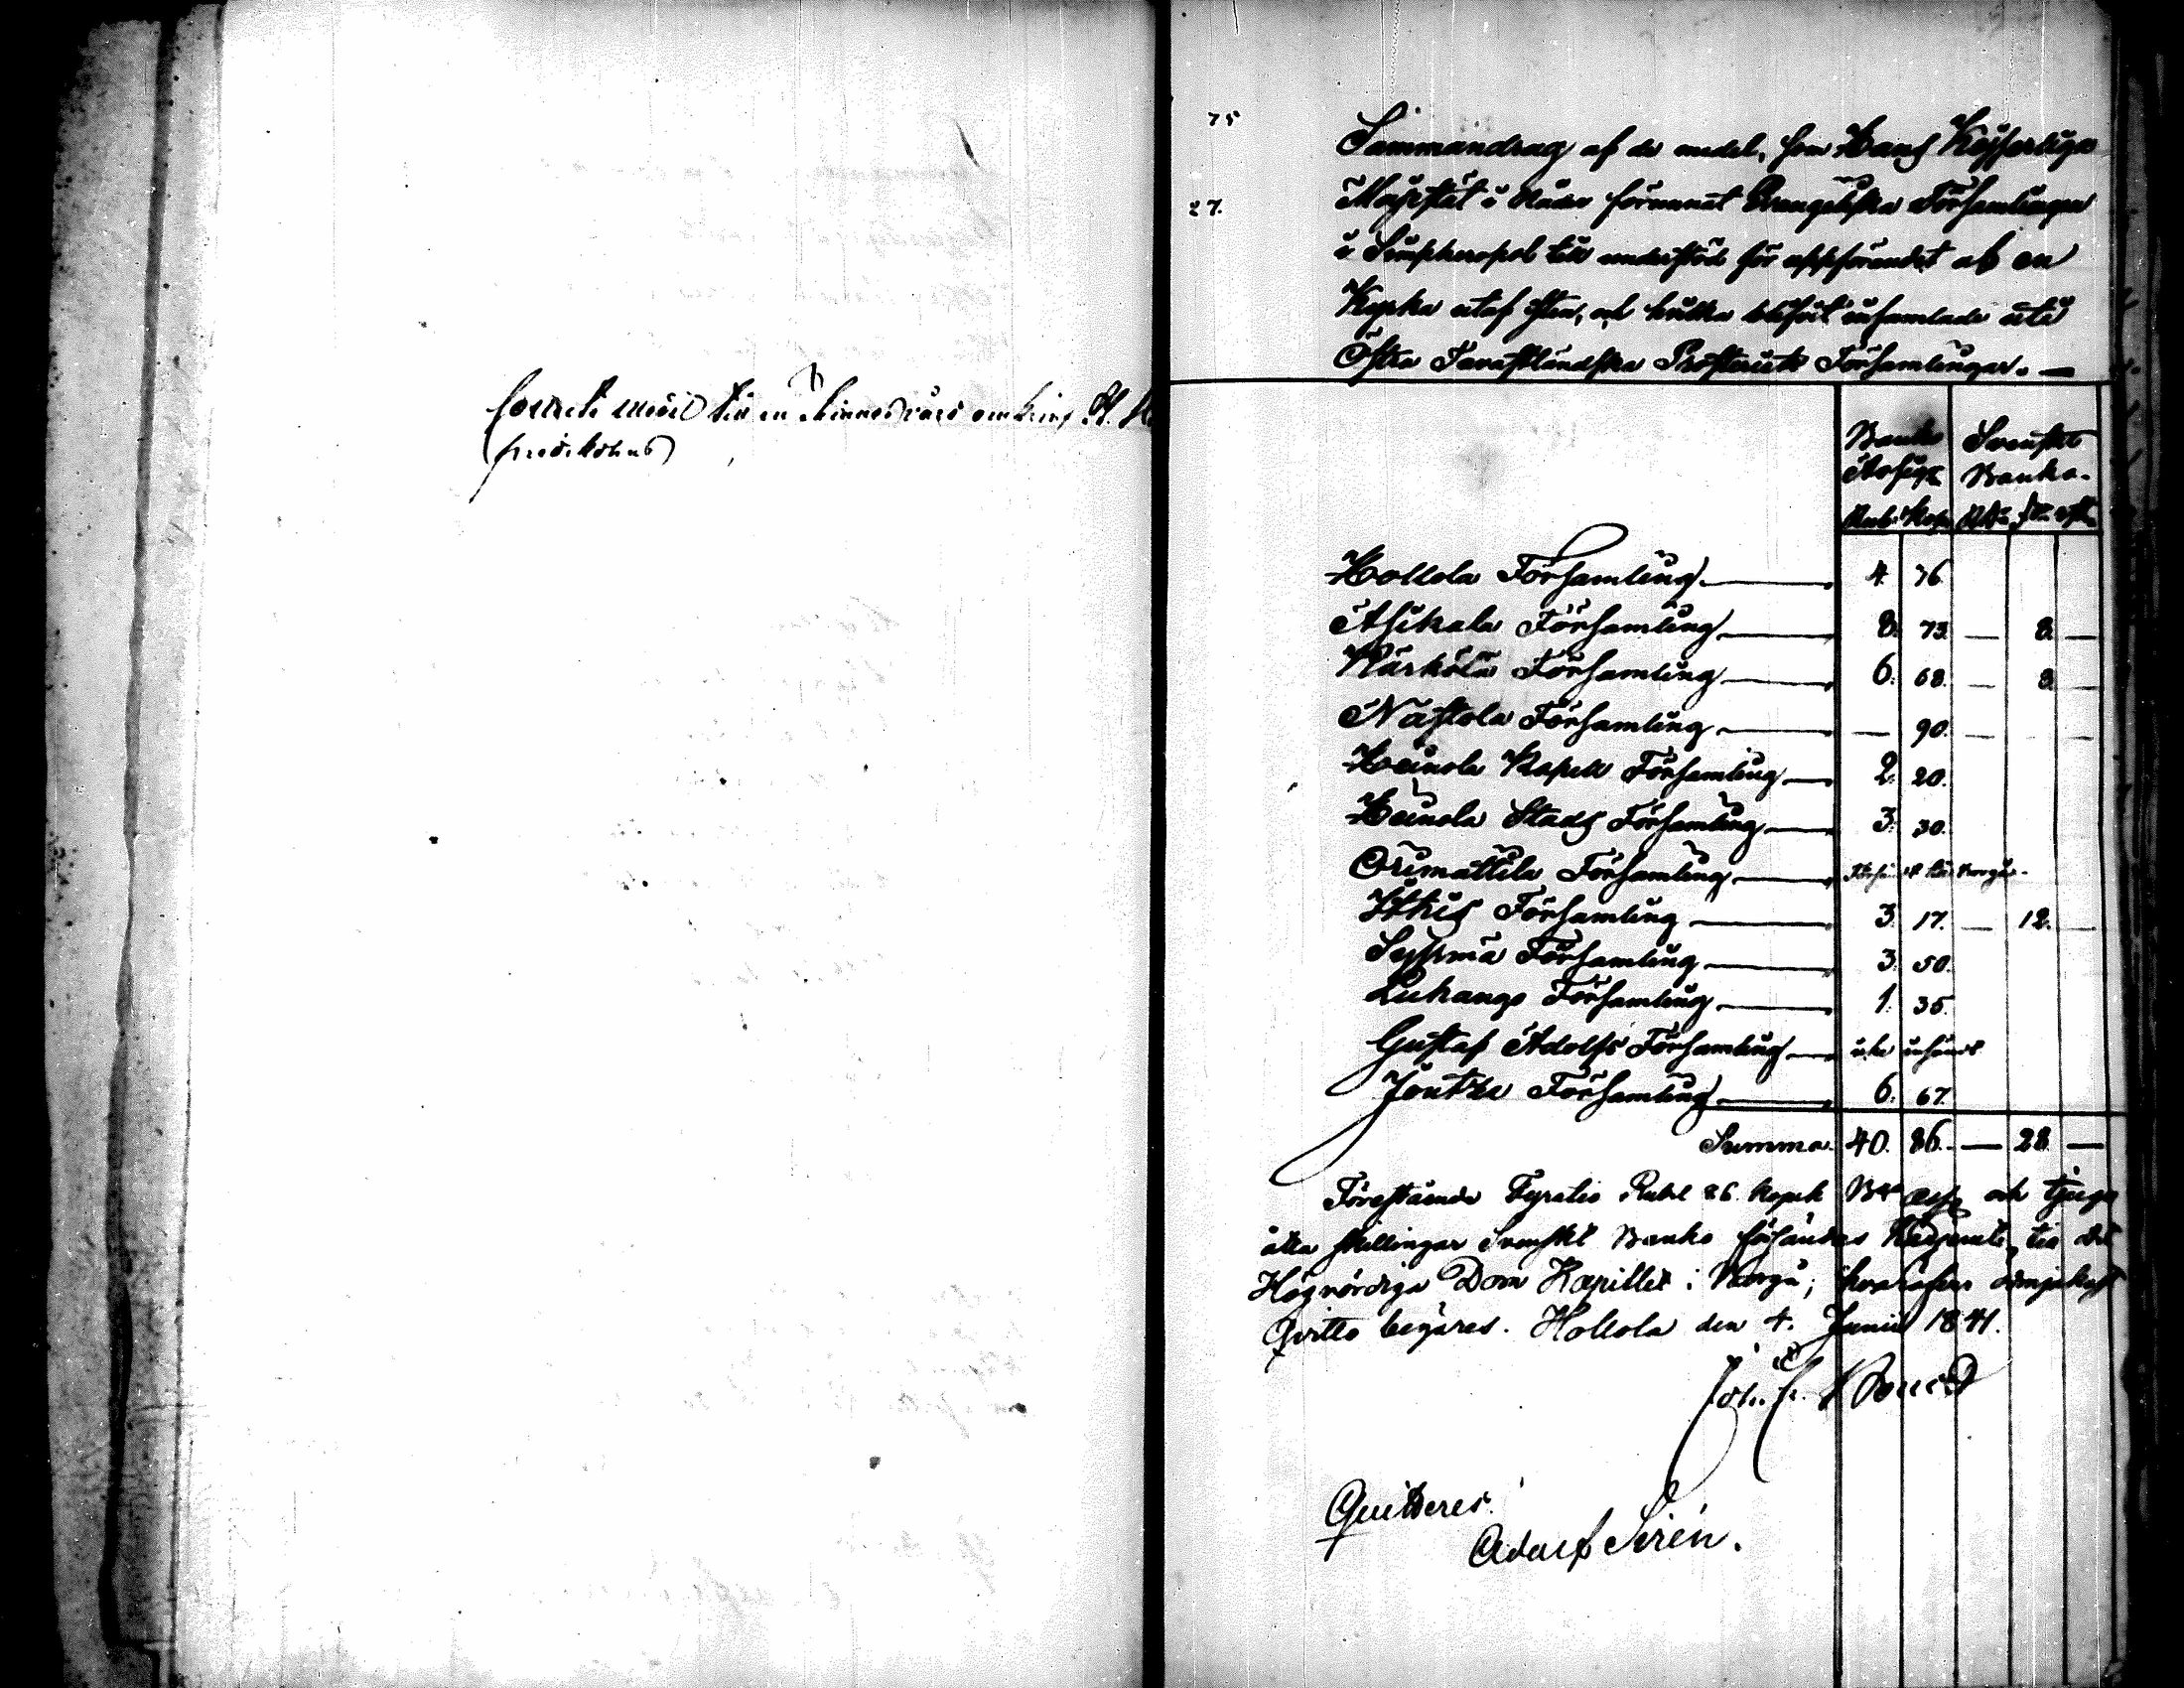 till en Minnesvård omkring
75
Sammandrag af de medel, som Hans Kejserliga
27.
Majestät i Nåder förunnat Evangeliska Församlingen
i Simpheropol till understöd för uppförandet af en
Kyrka utaf Sten, och hvilka blifvit insamlade uti
Östra Tavastländska Prosteriets Församlingar. —
Banko Svenskt
Assign. Banko.
Rub. Kop. Rdr. sk. rst.
Hollola Församling 4. 36.
Asikala Församling 8. 73. — 8. —
Kärkölä Församling 6. 68. — 8. —
Nastola Församling — 90. — — —
Heinola Kapell Församling 2. 20.
Heinola Stads Församling 3. 30.
Orimattila Församling till Borgå.
Ithis Församling 3. 17. — 12. —
Sysmä Församling 3. 50.
Luhango Församling 1. 35.
Gustaf Adolfs Församling icke insändt
Joutza Församling 6. 67.
Summa. 40. 86. — 28. —
Förestående Fyratio Rubel 86. Kopek B:co Ass. och tjugo
åtta skillingar Svenskt Banko försändes härjemte till det
Högvördiga Dom Kapitlet i Borgå; hvaröfver ödmjukast
Qvitto begäres. Hollola den 4. Junii 1841.
Joh. Fr.
Quitteres.
Adolf Sirén.